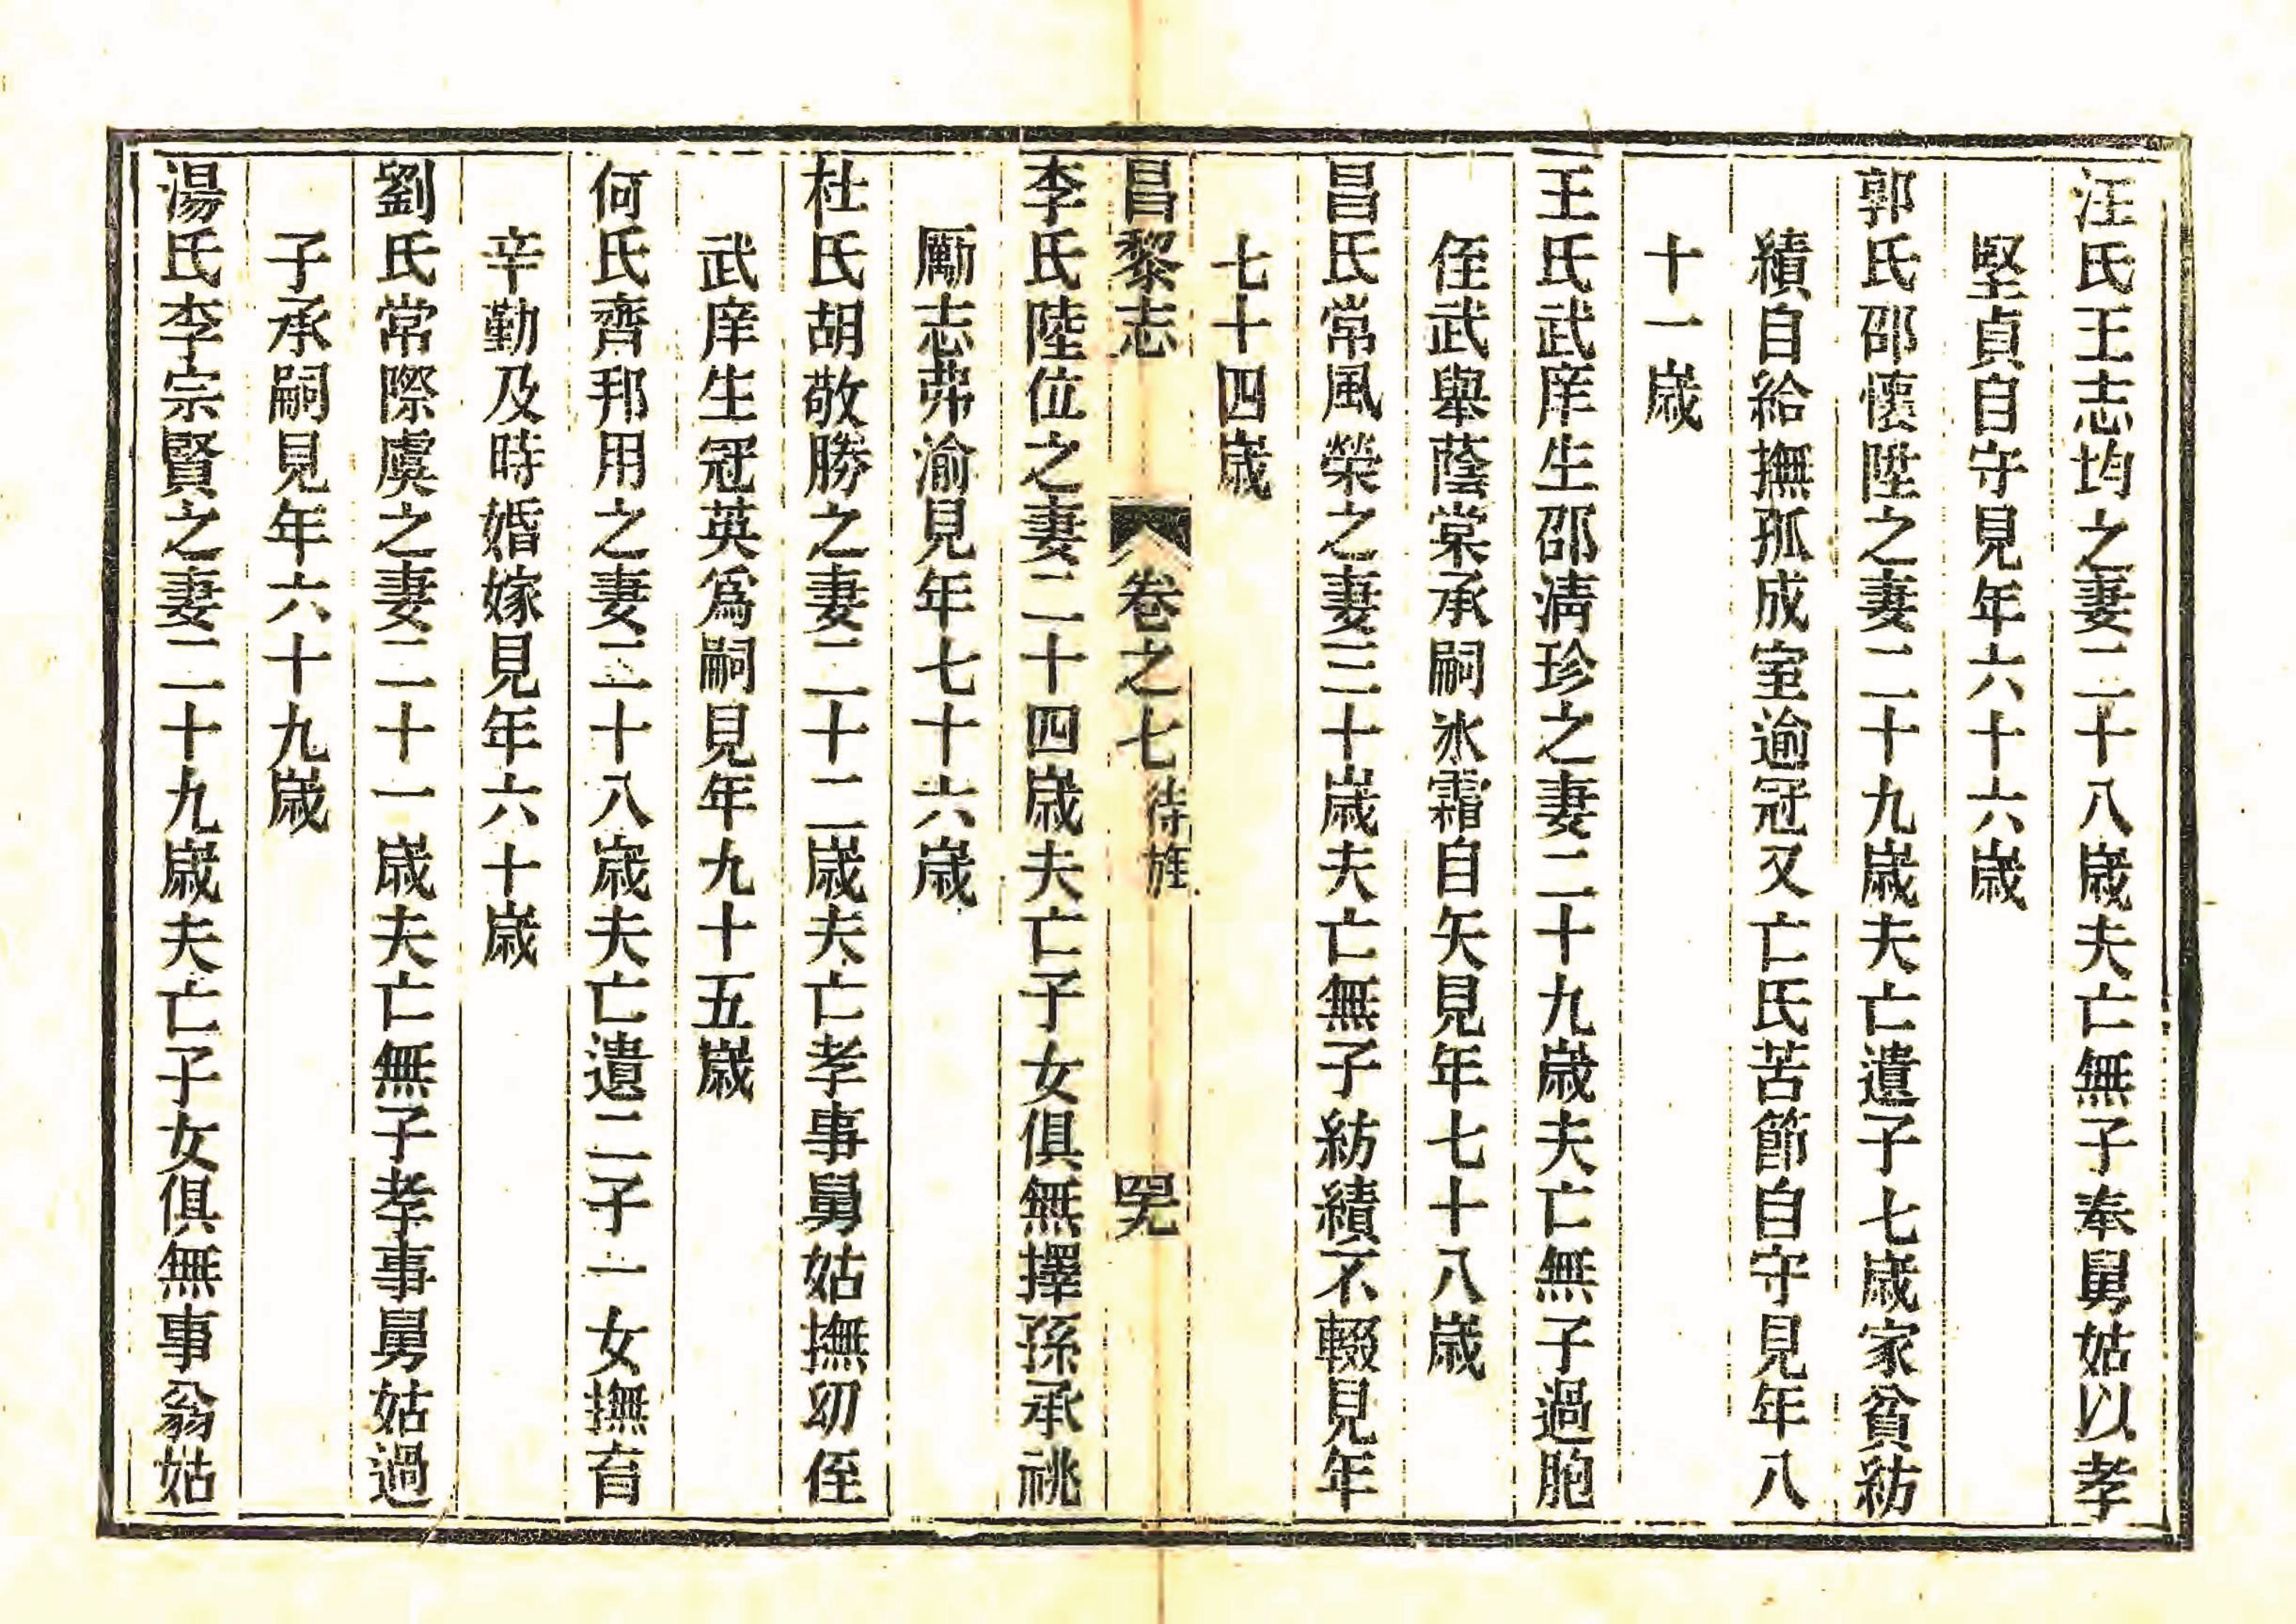 汪氏王志均之妻二十八歲夫亡無子奉舅姑以孝
堅貞自守見年六十六歲
郭氏邵懷陞之妻二十九歲夫亡遺子七歲家貧紡
績自給撫孤成室逾冠又亡氏苦節自守見年八
十一歲
王氏武庠生邵清珍之妻二十九歲夫亡無子過胞
侄武舉蔭棠承嗣冰霜自矢見年七十八歲
昌氏常風榮之妻三十歲夫亡無子紡績不輟見年
七十四歲
昌黎志 卷之七 待旌 罕
李氏陸位之妻二十四歲夫亡子女俱無擇孫承祧
勵志弗渝見年七十六歲
杜氏胡敬勝之妻二十二歲夫亡孝事舅姑撫幼侄
武庠生冠英爲嗣見年九十五歲
何氏齊邦用之妻二十八歲夫亡遺二子一女撫育
辛勤及時婚嫁見年六十歲
劉氏常際虞之妻二十一歲夫亡無子孝事舅姑過
子承嗣見年六十九歲
湯氏李宗賢之妻二十九歲夫亡子女俱無事翁姑